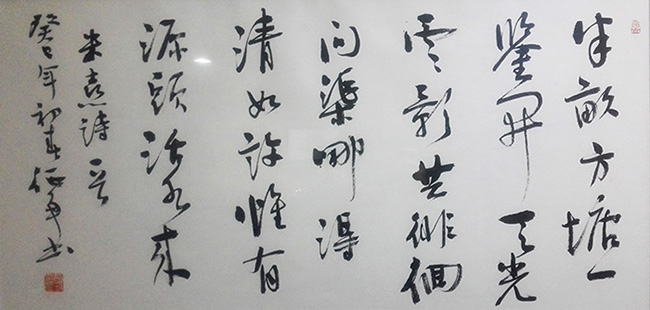 半畝方塘一
鑒開天光
雲影共徘徊
問渠哪得
清如許惟有
源頭活水來
朱熹詩
癸巳年初春書